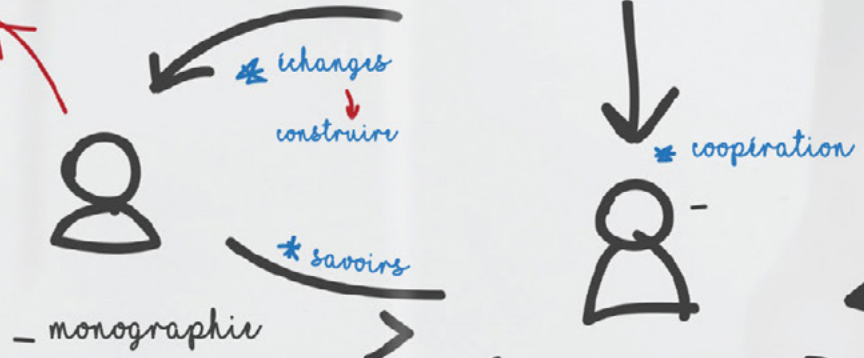 * échanges
construire
* coopération
* savoirs
_ monographie
-